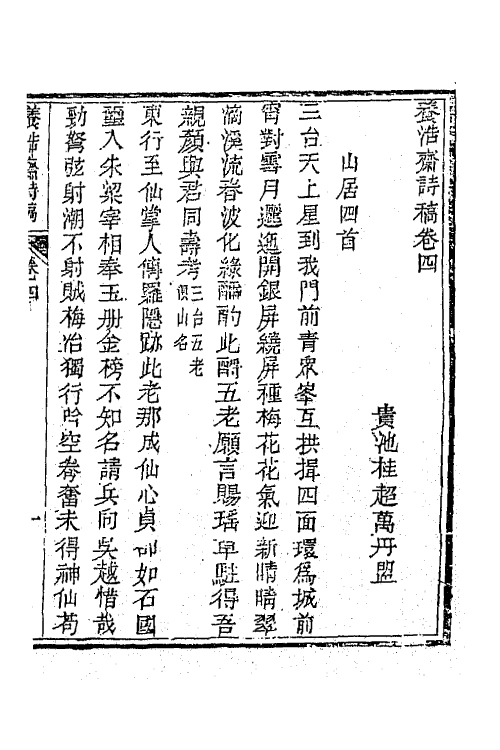 養浩齋詩稿卷四
貴池桂超萬丹盟
山居四首
三台天上星到我門前青衆峯互拱揖四面環爲城前
宵對雪月邐迤開銀屏繞屏種梅花花氣迎新晴晴翠
滴溪流春波化綠酃酌此酹五老願言賜瑤草駐得吾
親顏與君同壽考三台五老俱山名
東行至仙掌人傳羅隱跡此老那成仙心貞如石國
璽入朱梁宰相奉玉册金榜不知名請兵向吳越惜哉
勁弩弦射潮不射賊梅冶獨行吟空拳奮未得神仙苟
養浩齋詩稿 卷四 一